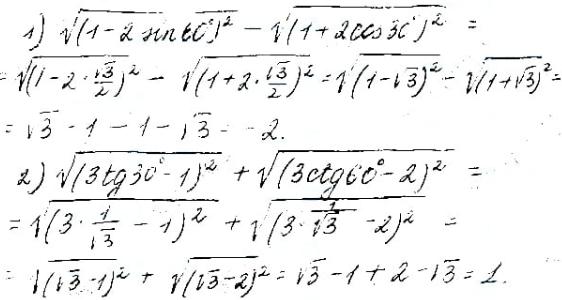 1) √(1-2 sin60°)² - √(1+2cos30°)² =
= √(1-2·√3/2)² - √(1+2·√3/2)² = √(1-√3)² - √(1+√3)² =
= √3 - 1 - 1 - √3 = -2.
2) √(3tg30°-1)² + √(3ctg60°-2)² =
= √(3·1/√3 - 1)² + √(3·1/√3 - 2)² =
= √(√3-1)² + √(√3-2)² = √3 - 1 + 2 - √3 = 1.